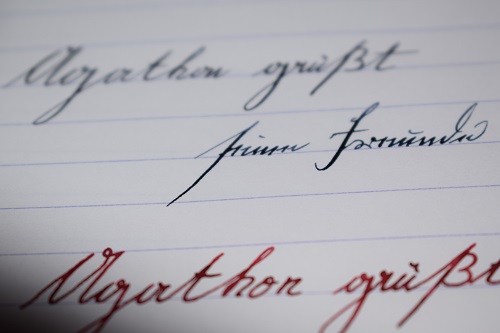 Agathon grüßt
seine Freunde
Agathon grüßt